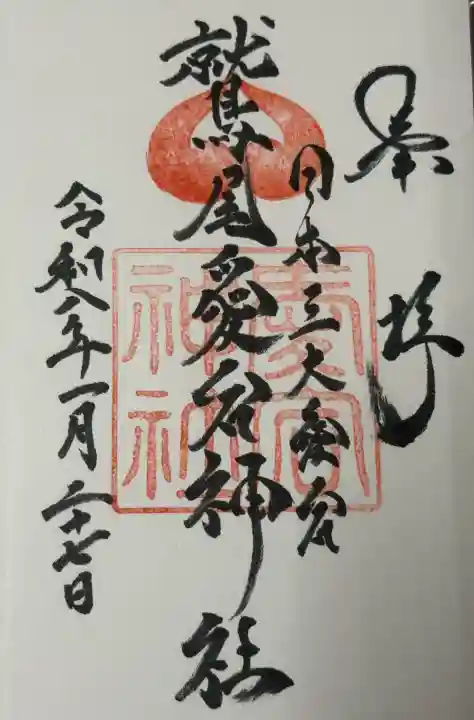 奉拝
日本三大愛宕
鷲尾愛宕神社
令和八年一月二十七日
愛宕
神社